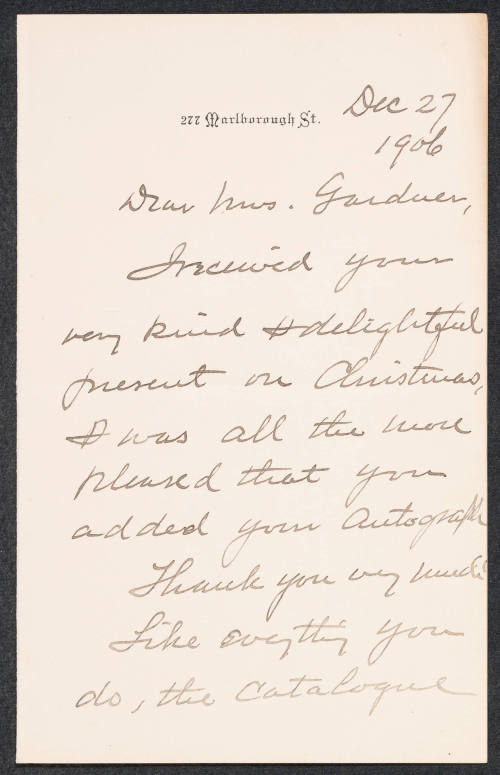 277 Marlborough St.
Dec 27
1906
Dear Mrs. Gardner,
I received your
very kind & delightful
present on Christmas,
& was all the more
pleased that you
added your autograph
Thank you very much
Like everything you
do, the Catalogue